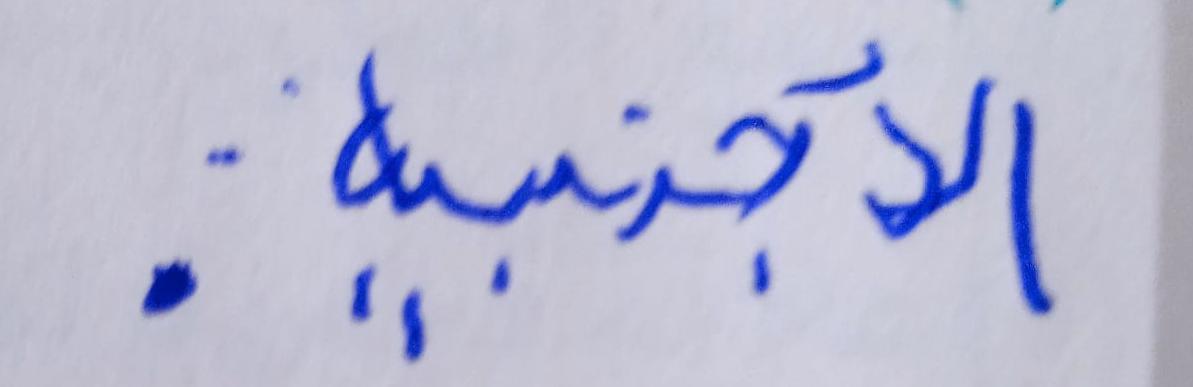 الاجنبية .